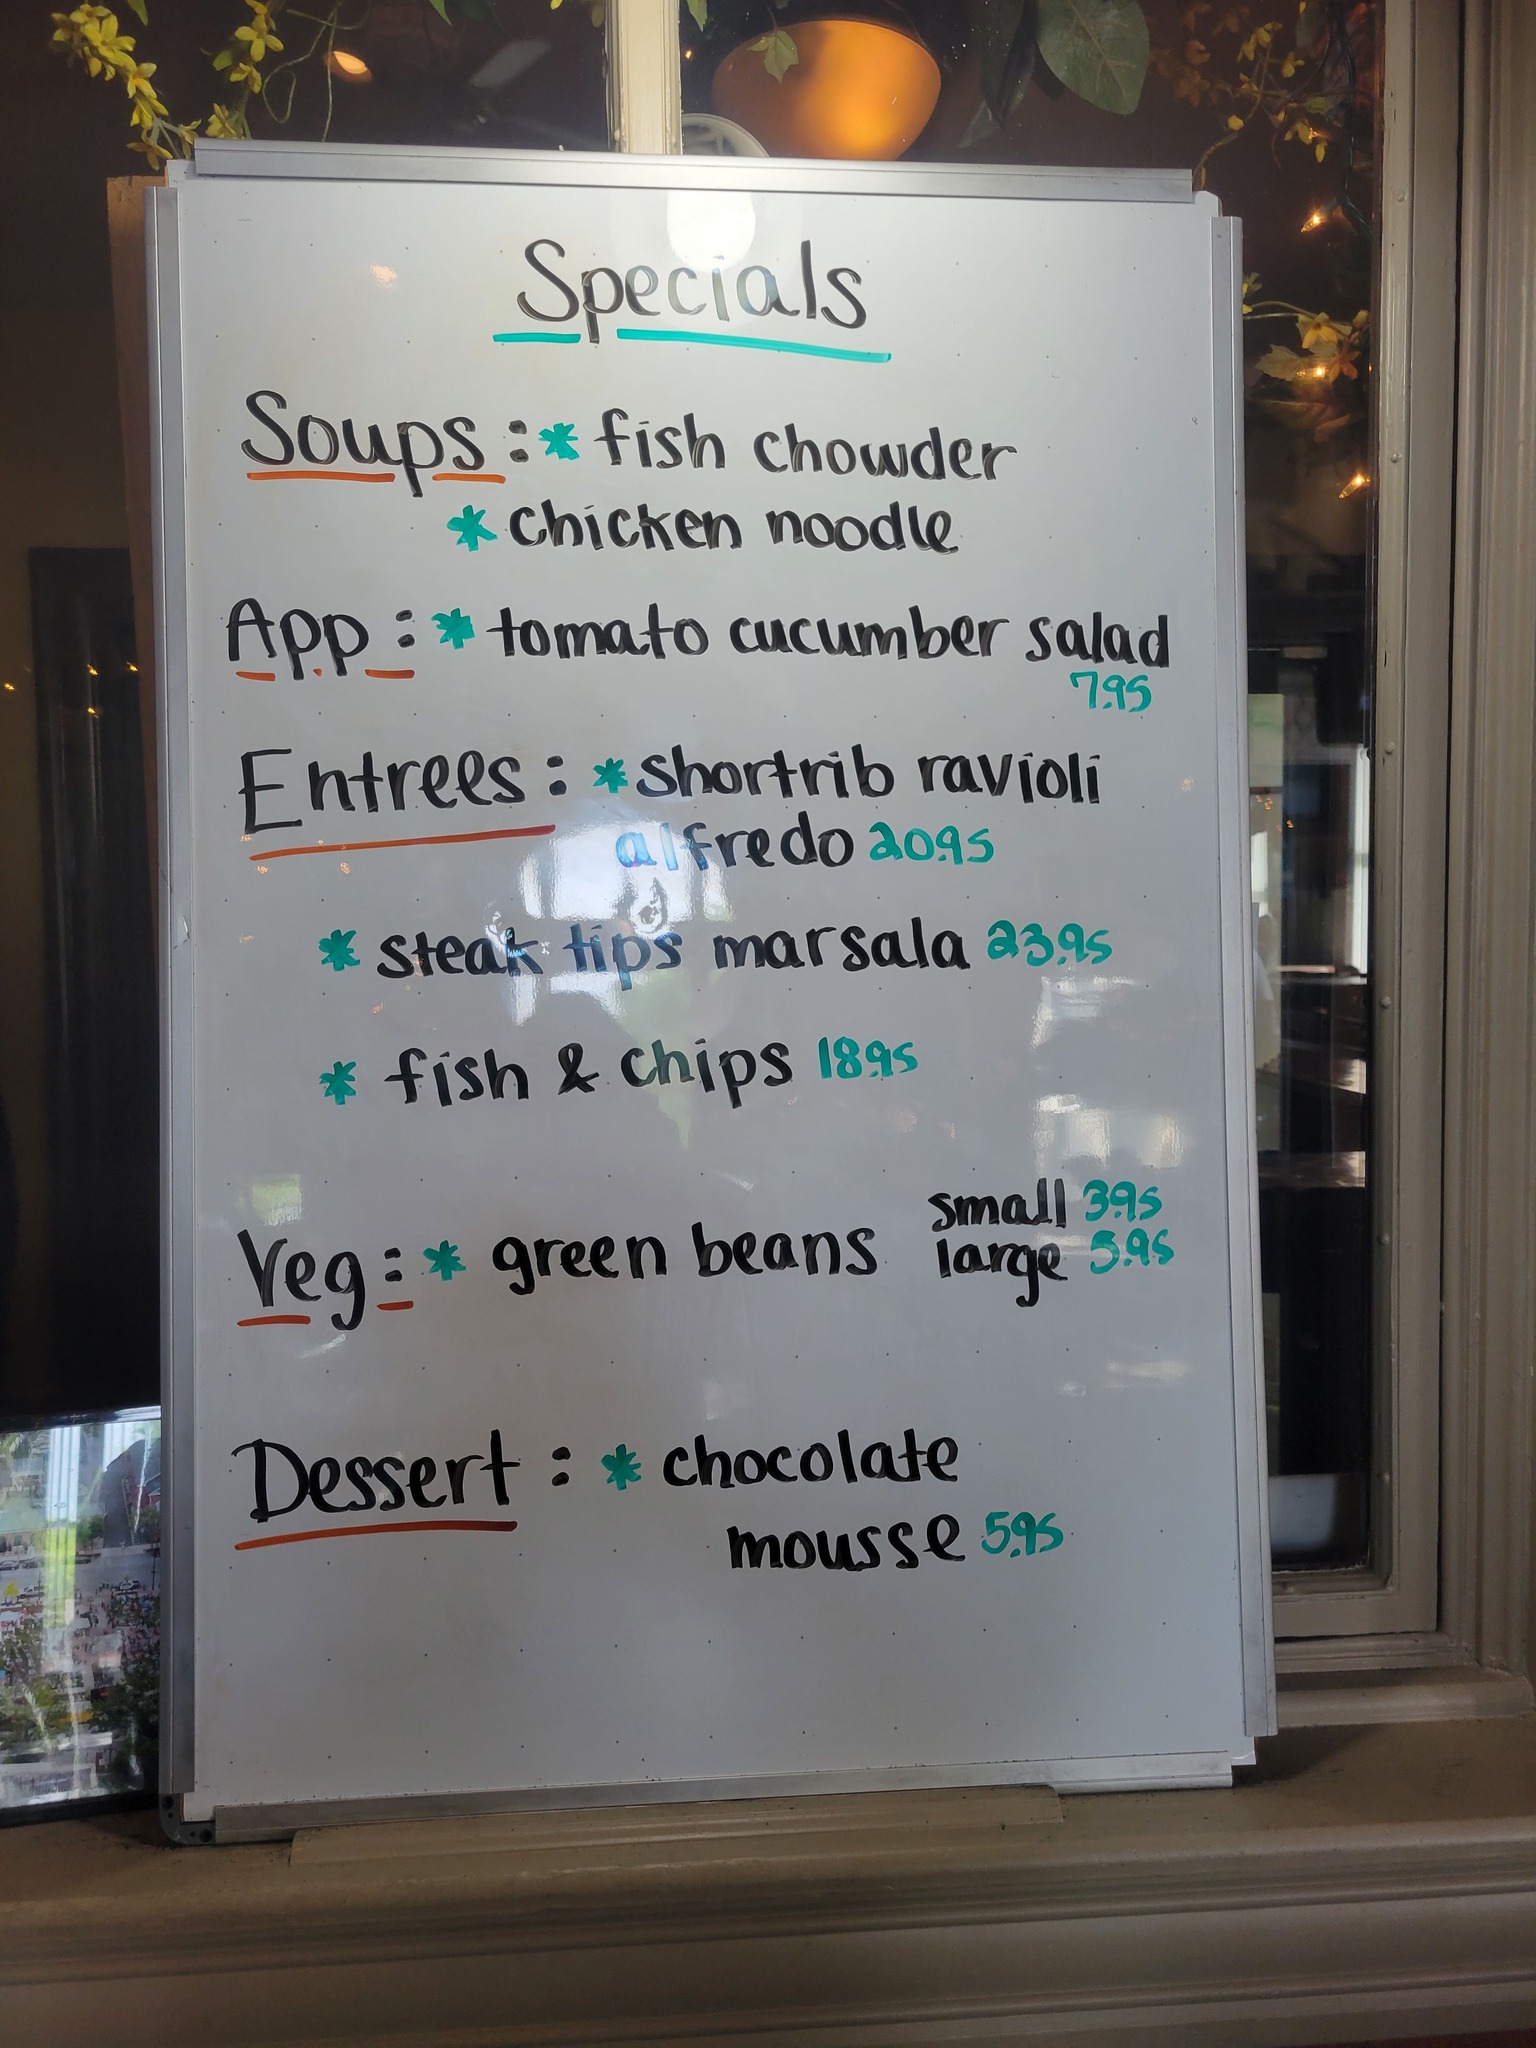 Specials
Soups: * fish chowder
* chicken noodle
App: * tomato cucumber salad
7.95
Entrees: * shortrib ravioli
alfredo 20.95
* steak tips marsala 23.95
* fish & chips 18.95
small 3.95
Veg: * green beans large 5.95
Dessert: * chocolate
mousse 5.95